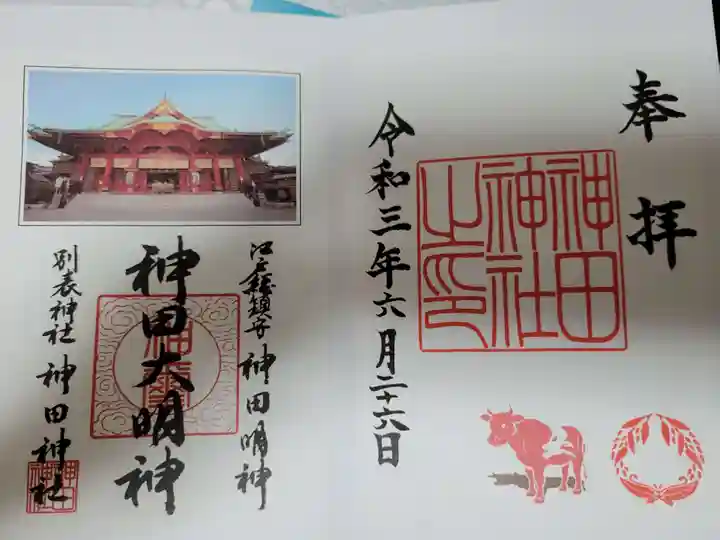 奉拝
神田
神社
之印
令和三年六月二十六日
江戸総鎮守 神田明神
神田大明神
別表神社 神田神社
神田
神社